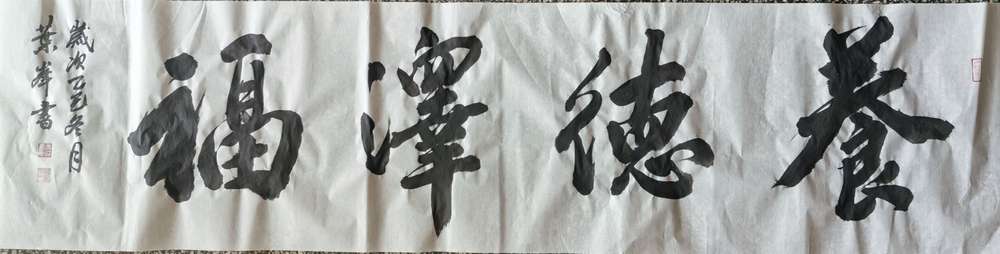 養德澤福
歲次乙巳冬月
葉峰書